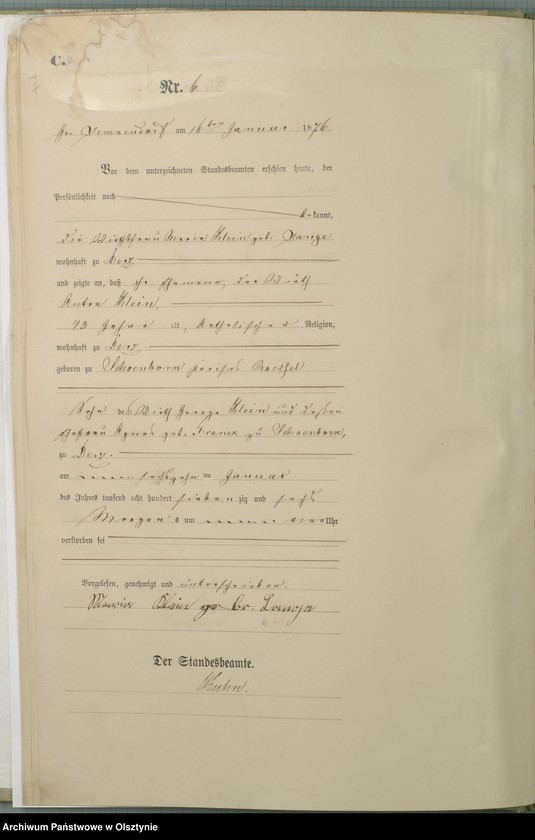 C.
Nr. 6
am 16ten Januar 1876
Vor dem unterzeichneten Standesbeamten erschien heute, der
Persönlichkeit nach
be kannt,
die Wirthsfrau Maria Klein geb. Lange
wohnhaft zu Derz
und zeigte an, daß ihr Ehemann, der Wirth
Anton Klein,
73 Jahre alt, katholischer Religion,
wohnhaft zu Derz
geboren zu Schoenborn Kreises Roessel
Sohn des Wirth George Klein und dessen
Ehefrau Agnes geb. zu Schoenborn,
zu Derz.
am sechszehn ten Januar
des Jahres tausend acht hundert sieben zig und sechs
Morgens um Uhr
verstorben sei
Vorgelesen, genehmigt und unterschrieben.
Maria Klein Lange
Der Standesbeamte.
Kuhn.
Archiwum Państwowe w Olsztynie